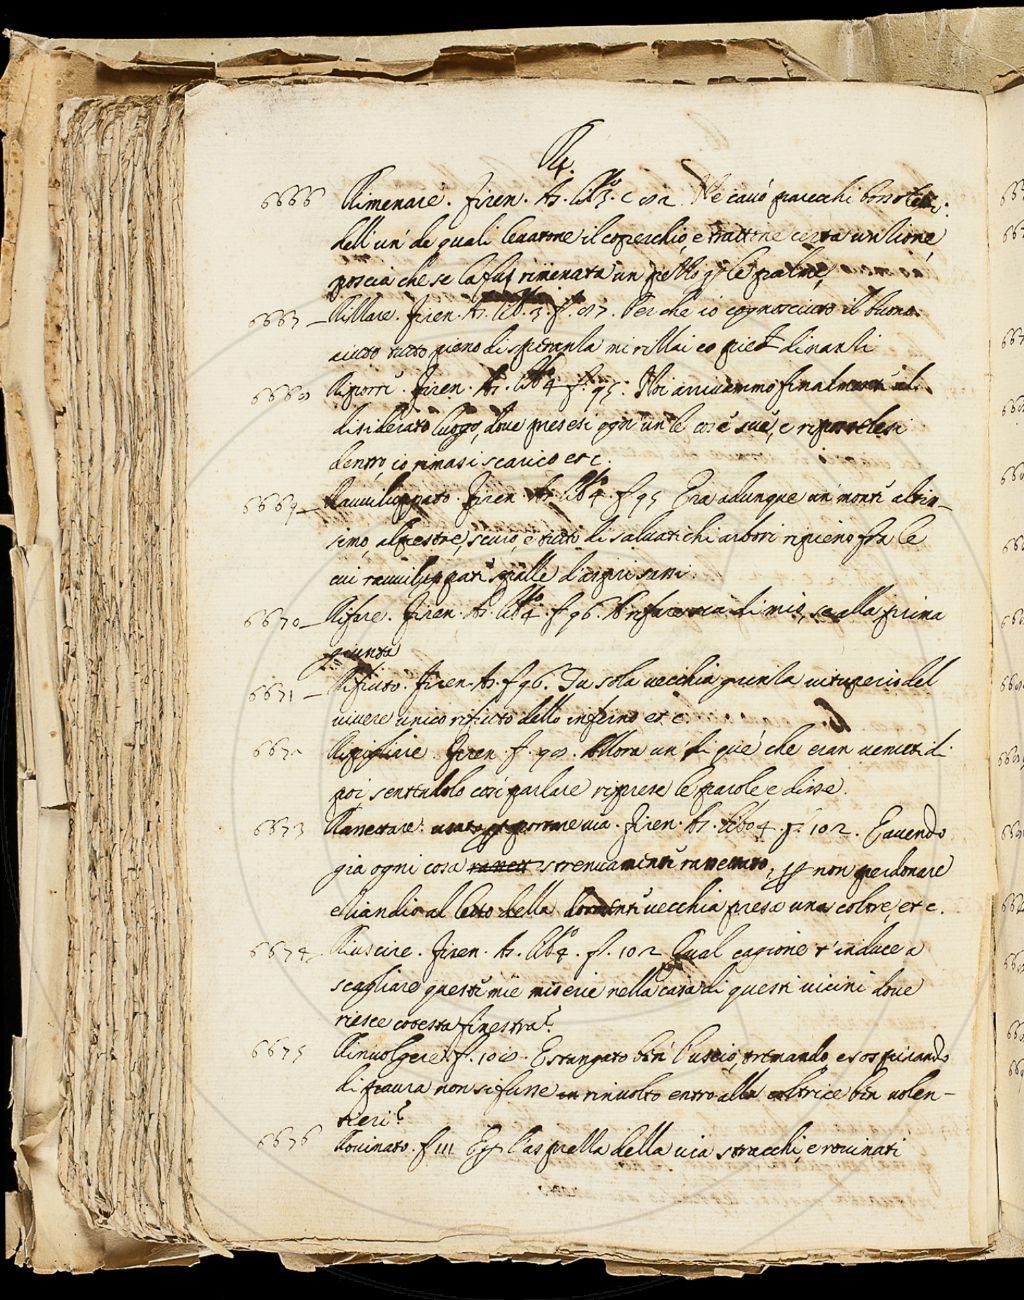 R 4.
6666 Rimenare. Firen. As. lib.º 3. c 82 Ne cavò parecchi bossoletti:
dell'un de quali levatone il coperchio, e trattone certa untione
poscia che se la fu rimenata un pezzo p le palme,
6667 – Rizzare. Firen. As. lib. 3. f. 87. Per che io cognosciuto il buono
aiuto tutto pieno di speranza mi rizzai co piedi dinanzi
6668 Riporre. Firen. As. lib.º 4 f. 95. Noi arrivammo finalmente al
desiderato luogo, dove presesi ogn'un le cose sue, e ripostelesi
dentro, io rimasi scarico etc.
6669 – Ravviluppato. Firen. As. lib.º 4. f 95 Era adunque un monte altis-
simo, alpestre, scuro, e tutto di salvatichi arbori ripieno fra le
cui ravviluppate spalle d'aspri sassi
6670 – Rifare. Firen. As. lib.º 4. f 96. di mio, se alla prima
giunta
6671 – Rifiuto. Firen. As. f 96. Tu sola vecchia grinza vituperio del
vivere unico rifiuto dello inferno et c
6672 Ripigliare. Firen. f. 98. Allora un di que' che eran venuti di
poi, sentendolo così parlare riprese le parole e disse.
6673 Ranettare. Firen. As. libro 4. f. 102. E avendo
già ogni cosa ranett strenuamente ranettato, p non perdonare
etiandio al letto della dormente vecchia presa una coltre, et c.
6674 – Riuscire. Firen. As. lib.º 4. f. 102 Qual cagione t'induce a
scagliare queste mie miserie nella casa di questi vicini dove
riesce cotesta finestra?
6675 Rinvolgere. f. 108. Estungato ben l'uscio, tremando, e sospirando
di paura non si fusse in rinvolto entro alla coltrice ben volen-
tieri?
6676 Rovinato. f 111 E p l'asprezza della via stracchi, e rovinati